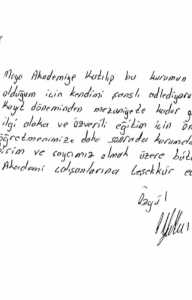 Maya Akademiye Katılıp bu kurumun
olduğum için kendimi şanslı addediyoru
Kayıt döneminden mezuniyete kadar g
ilgi alaka ve özverili eğitim için ön
öğretmenimize daha sonrada kurumda
birim ve saycımız olmak üzere büt
Akademi çalışanlarına teşekkür ed
Özgül